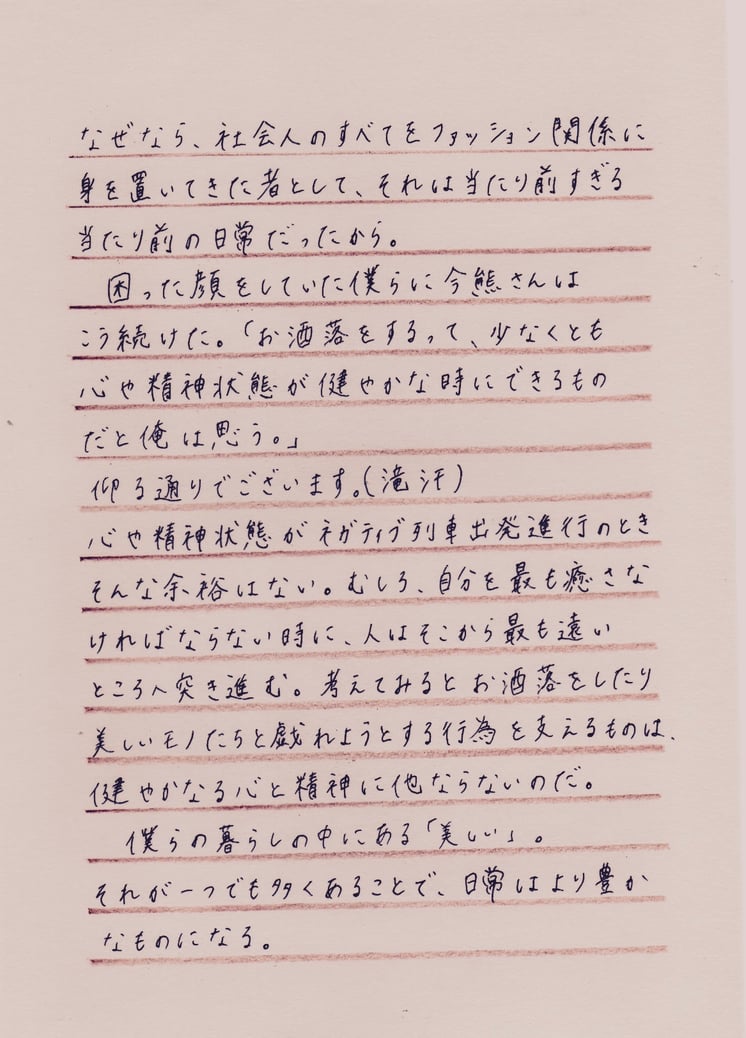 なぜなら、社会人のすべてをファッション関係に
身を置いてきた者として、それは当たり前すぎる
当たり前の日常だったから。
困った顔をしていた僕らに今熊さんは
こう続けた。「お洒落をするって、少なくとも
心や精神状態が健やかな時にできるもの
だと俺は思う。」
仰る通りでございます。(滝汗)
心や精神状態がネガティブ列車出発進行のとき
そんな余裕はない。むしろ、自分を最も癒さな
ければならない時に、人はそこから最も遠い
ところへ突き進む。考えてみるとお洒落をしたり
美しいモノたちと戯れようとする行為を支えるものは、
健やかなる心と精神に他ならないのだ。
僕らの暮らしの中にある「美しい」。
それが一つでも多くあることで、日常はより豊か
なものになる。